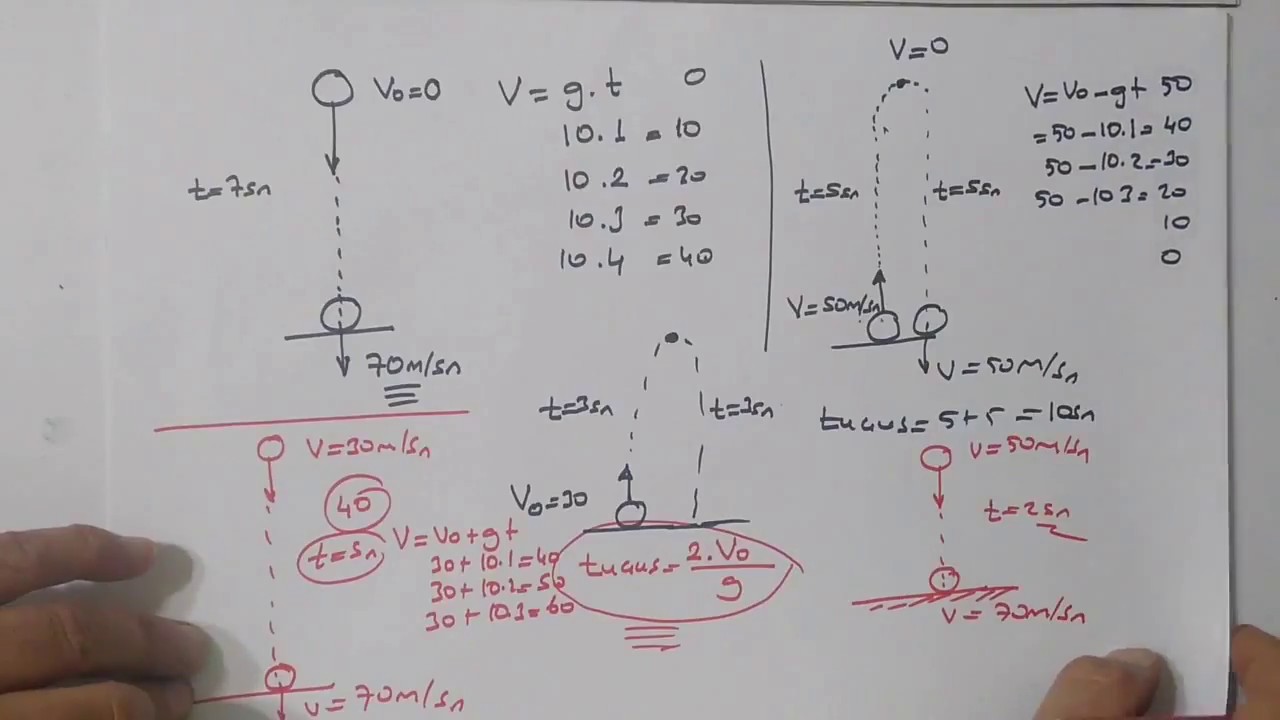 V₀=0
V= g.t 0
10.1 =10
10.2 =20
10.3 =30
10.4 =40
t=7sn
70m/sn
V=0
V=V₀-gt 50
=50-10.1=40
50-10.2=30
50-10 3=20
10
0
t=5sn
t=5sn
V=50m/sn
V=50m/sn
tuçuş=5+5=10sn
t=3sn
t=3sn
V₀=30
tuçuş=2.V₀/g
V=30m/sn
40
t=sn
V=V₀+gt
30+10.1=40
30+10.2=50
30+10.3=60
V=70m/sn
V=50m/sn
t=2sn
V=70m/sn